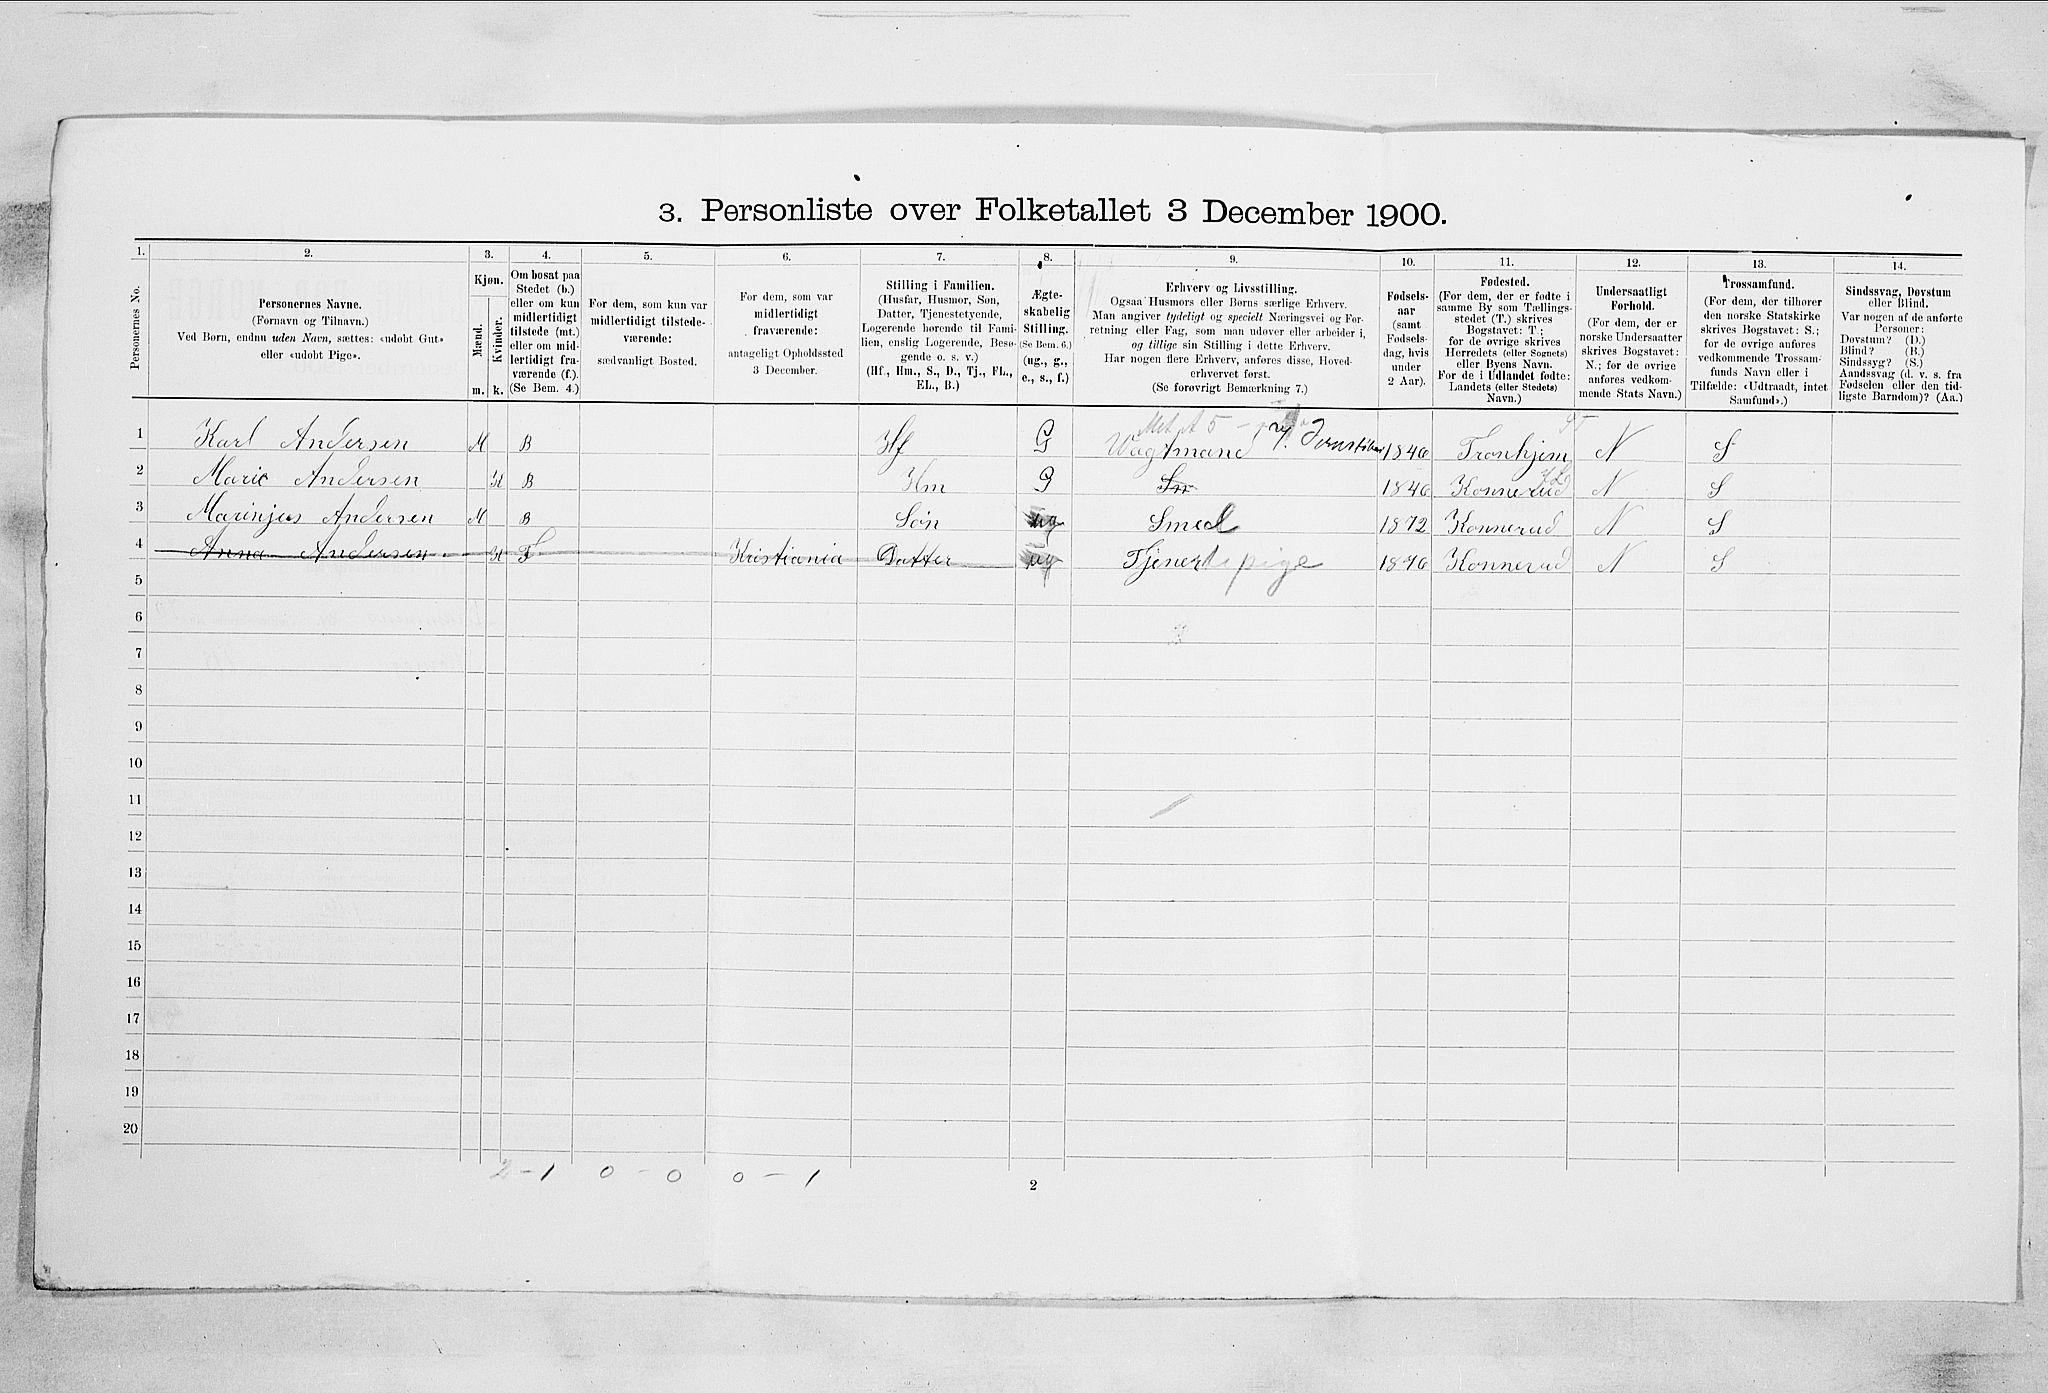 3. Personliste over Folketallet 3 December 1900.
1. 2. 3. 4. 5. 6. 7. 8. 9. 10. 11. 12. 13. 14.
Personernes No.
Personernes Navne.
(Fornavn og Tilnavn.)
Ved Børn, endnu uden Navn, sættes: «udobt Gut»
eller «udobt Pige».
Kjøn.
Mænd.
Kvinder.
m. k.
Om bosat paa
Stedet (b.)
eller om kun
midlertidigt
tilstede (mt.)
eller om mid-
lertidigt fra-
værende (f.).
(Se Bem. 4.)
For dem, som kun var
midlertidigt tilstede-
værende:
sædvanligt Bosted.
For dem, som var
midlertidigt
fraværende:
antageligt Opholdssted
3 December.
Stilling i Familien.
(Husfar, Husmor, Søn,
Datter, Tjenestetyende,
Logerende hørende til Fami-
lien, enslig Logerende, Besø-
gende o. s. v.)
(Hf., Hm., S., D., Tj., FL.,
EL., B.)
Ægte-
skabelig
Stilling.
(Se Bem. 6.)
(ug., g.,
e., s., f.)
Erhverv og Livsstilling.
Ogsaa Husmors eller Børns særlige Erhverv.
Man angiver tydeligt og specielt Næringsvei og For-
retning eller Fag, som man udover eller arbeider i,
og tillige sin Stilling i dette Erhverv.
Har nogen flere Erhverv, anføres disse, Hoved-
erhvervet først.
(Se forøvrigt Bemærkning 7.)
Fødsels-
aar
(samt
Fødsels-
dag, hvis
under
2 Aar).
Fødested.
(For dem, der er fødte i
samme By som Tællings-
stedet (T.) skrives
Bogstavet: T.;
for de øvrige skrives
Herredets (eller Sognets)
eller Byens Navn.
For de i Udlandet fødte:
Landets (eller Stedets)
Navn.)
Undersaatligt
Forhold.
(For dem, der er
norske Undersaatter
skrives Bogstavet:
N.; for de øvrige
anføres vedkom-
mende Stats Navn.)
Trossamfund.
(For dem, der tilhører
den norske Statskirke
skrives Bogstavet: S.;
for de øvrige anføres
vedkommende Trossam-
funds Navn eller i
Tilfælde: «Udtraadt, intet
Samfund».)
Sindssvag, Døvstum
eller Blind.
Var nogen af de anførte
Personer:
Døvstum? (D.)
Blind? (B.)
Sindssyg? (S.)
Aandssvag (d. v. s. fra
Fødselen eller den tid-
ligste Barndom)? (Aa.)
1 Karl Andersen M B Hf G Vagtmand 1846 Tronhjem N S
2 Marie Andersen K B Hm G 1846 Konnerud N S
3 Marinjus Andersen M B Søn ug Smed 1872 Konnerud N S
4 Anna Andersen K F Kristiania Datter ug Tjenestepige 1876 Konnerud N S
5
6
7
8
9
10
11
12
13
14
15
16
17
18
19
20
2 – 1 0 – 0 0 – 1
2